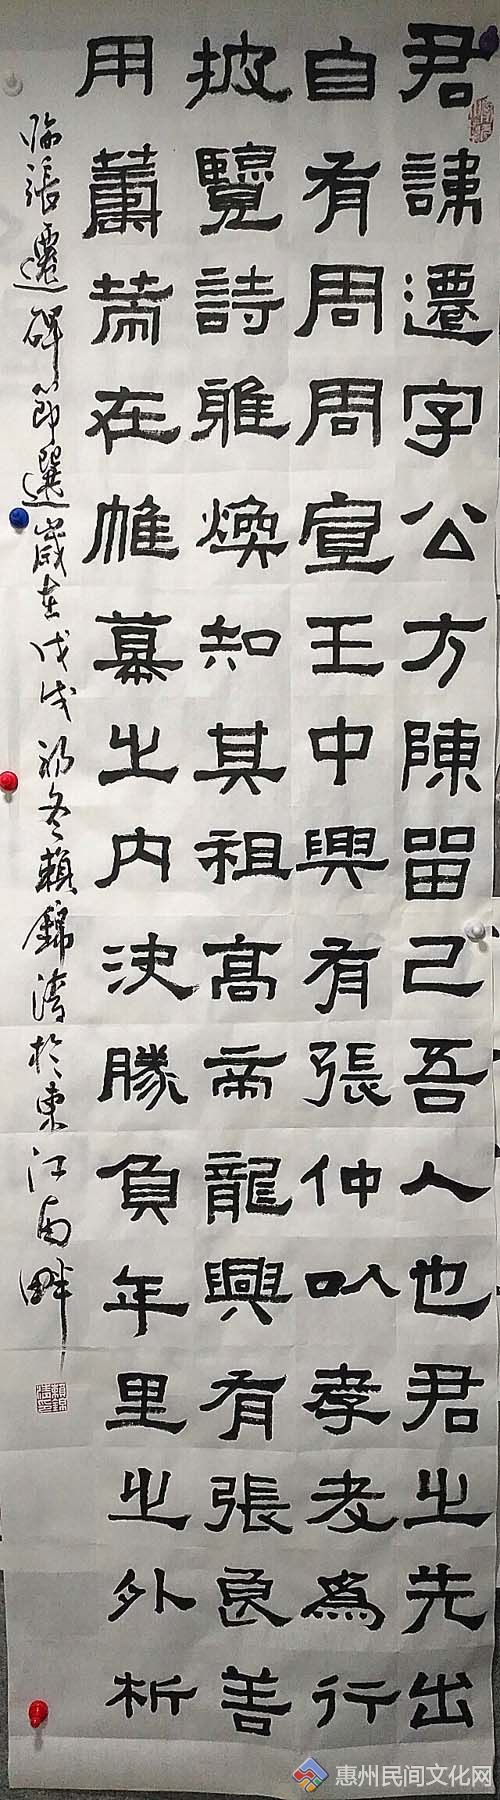 君諱遷字公方陳留己吾人也君之先出
自有周周宣王中興有張仲以孝友爲行
披覽詩雅煥知其祖高帝龍興有張良善
用籌策在帷幕之内決勝負年里之外析
臨張遷碑節選歲在戊戌初冬賴錦濤於東江南畔
惠州民间文化网